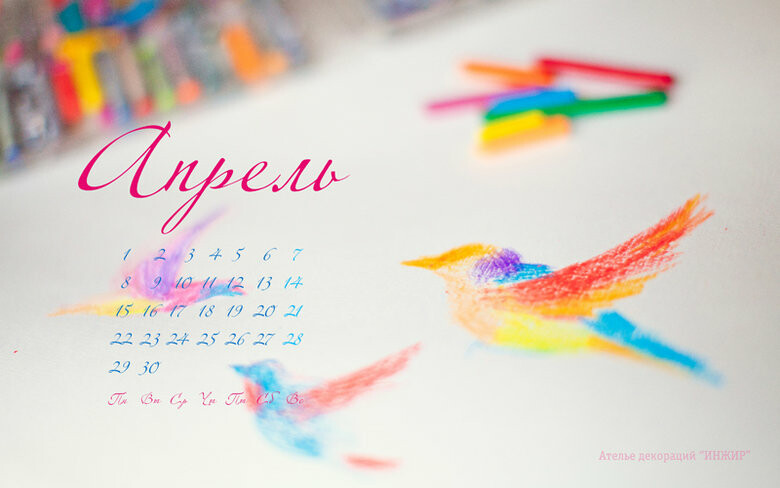 Апрель
1 2 3 4 5 6 7
8 9 10 11 12 13 14
15 16 17 18 19 20 21
22 23 24 25 26 27 28
29 30
Пн Вт Ср Чт Пт Сб Вс
Ателье декораций "ИНЖИР"